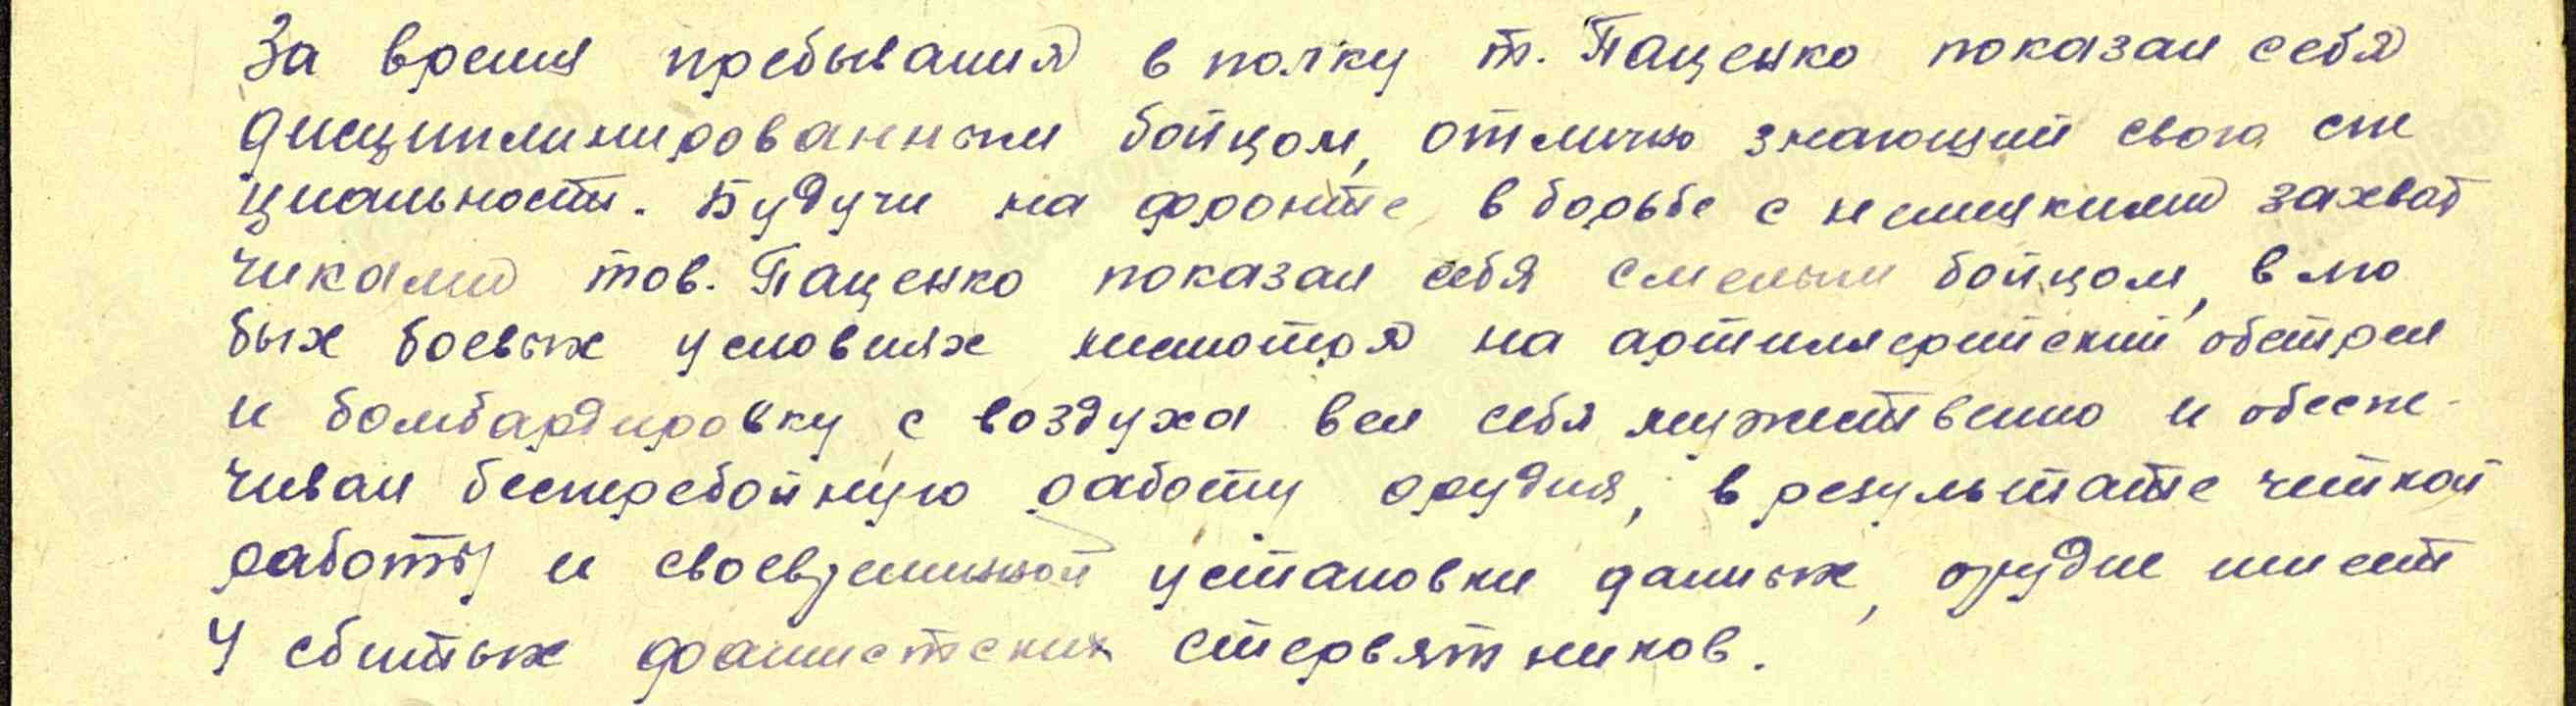 За время пребывания в полку т. Паценко показал себя
дисциплинированным бойцом, отлично знающий свою спе
циальность. Будучи на фронте в борьбе с немецкими захват
чиками тов. Паценко показал себя смелым бойцом, в лю
бых боевых условиях несмотря на артиллерийский обстрел
и бомбардировку с воздуха вел себя мужественно и обеспе-
чивал бесперебойную работу орудия, в результате четкой
работы и своевременной установки данных, орудие имеет
4 сбитых фашистских стервятников.